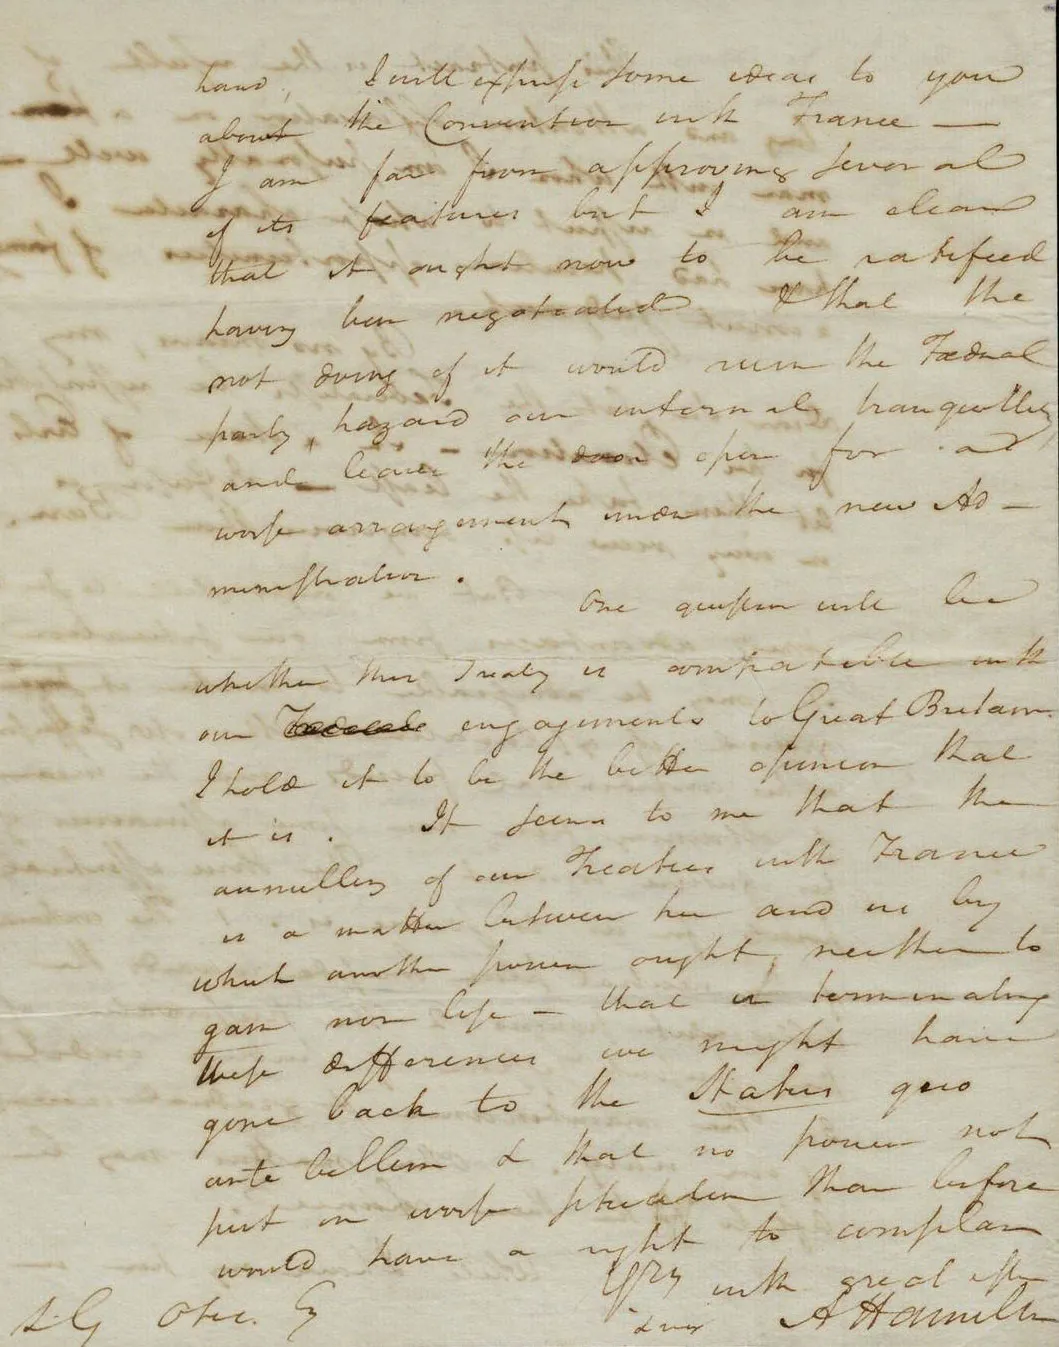 hand. I will express some ideas to you
about the Convention with France —
I am far from approving several
of its features but I am clear
that it ought now to be ratifeed
having been negotiated & that the
not doing of it would ruin the Fœderal
party, hazard our internal tranquillity
and leave the door open for a
worse arrangement under the new Ad-
ministration.
One question will be
whether this Treaty is compatible with
our engagements to Great Britain.
I hold it to be the better opinion that
it is. It seems to me that the
annulling of our Treaties with France
is a matter between her and us by
which another power ought neither to
gain nor lose — that in terminating
these differences we might have
gone back to the Status quo
ante bellum & that no power not
put in worse situation than before
would have a right to complain
Yrs with great este
A Hamilton
Otis. Esq